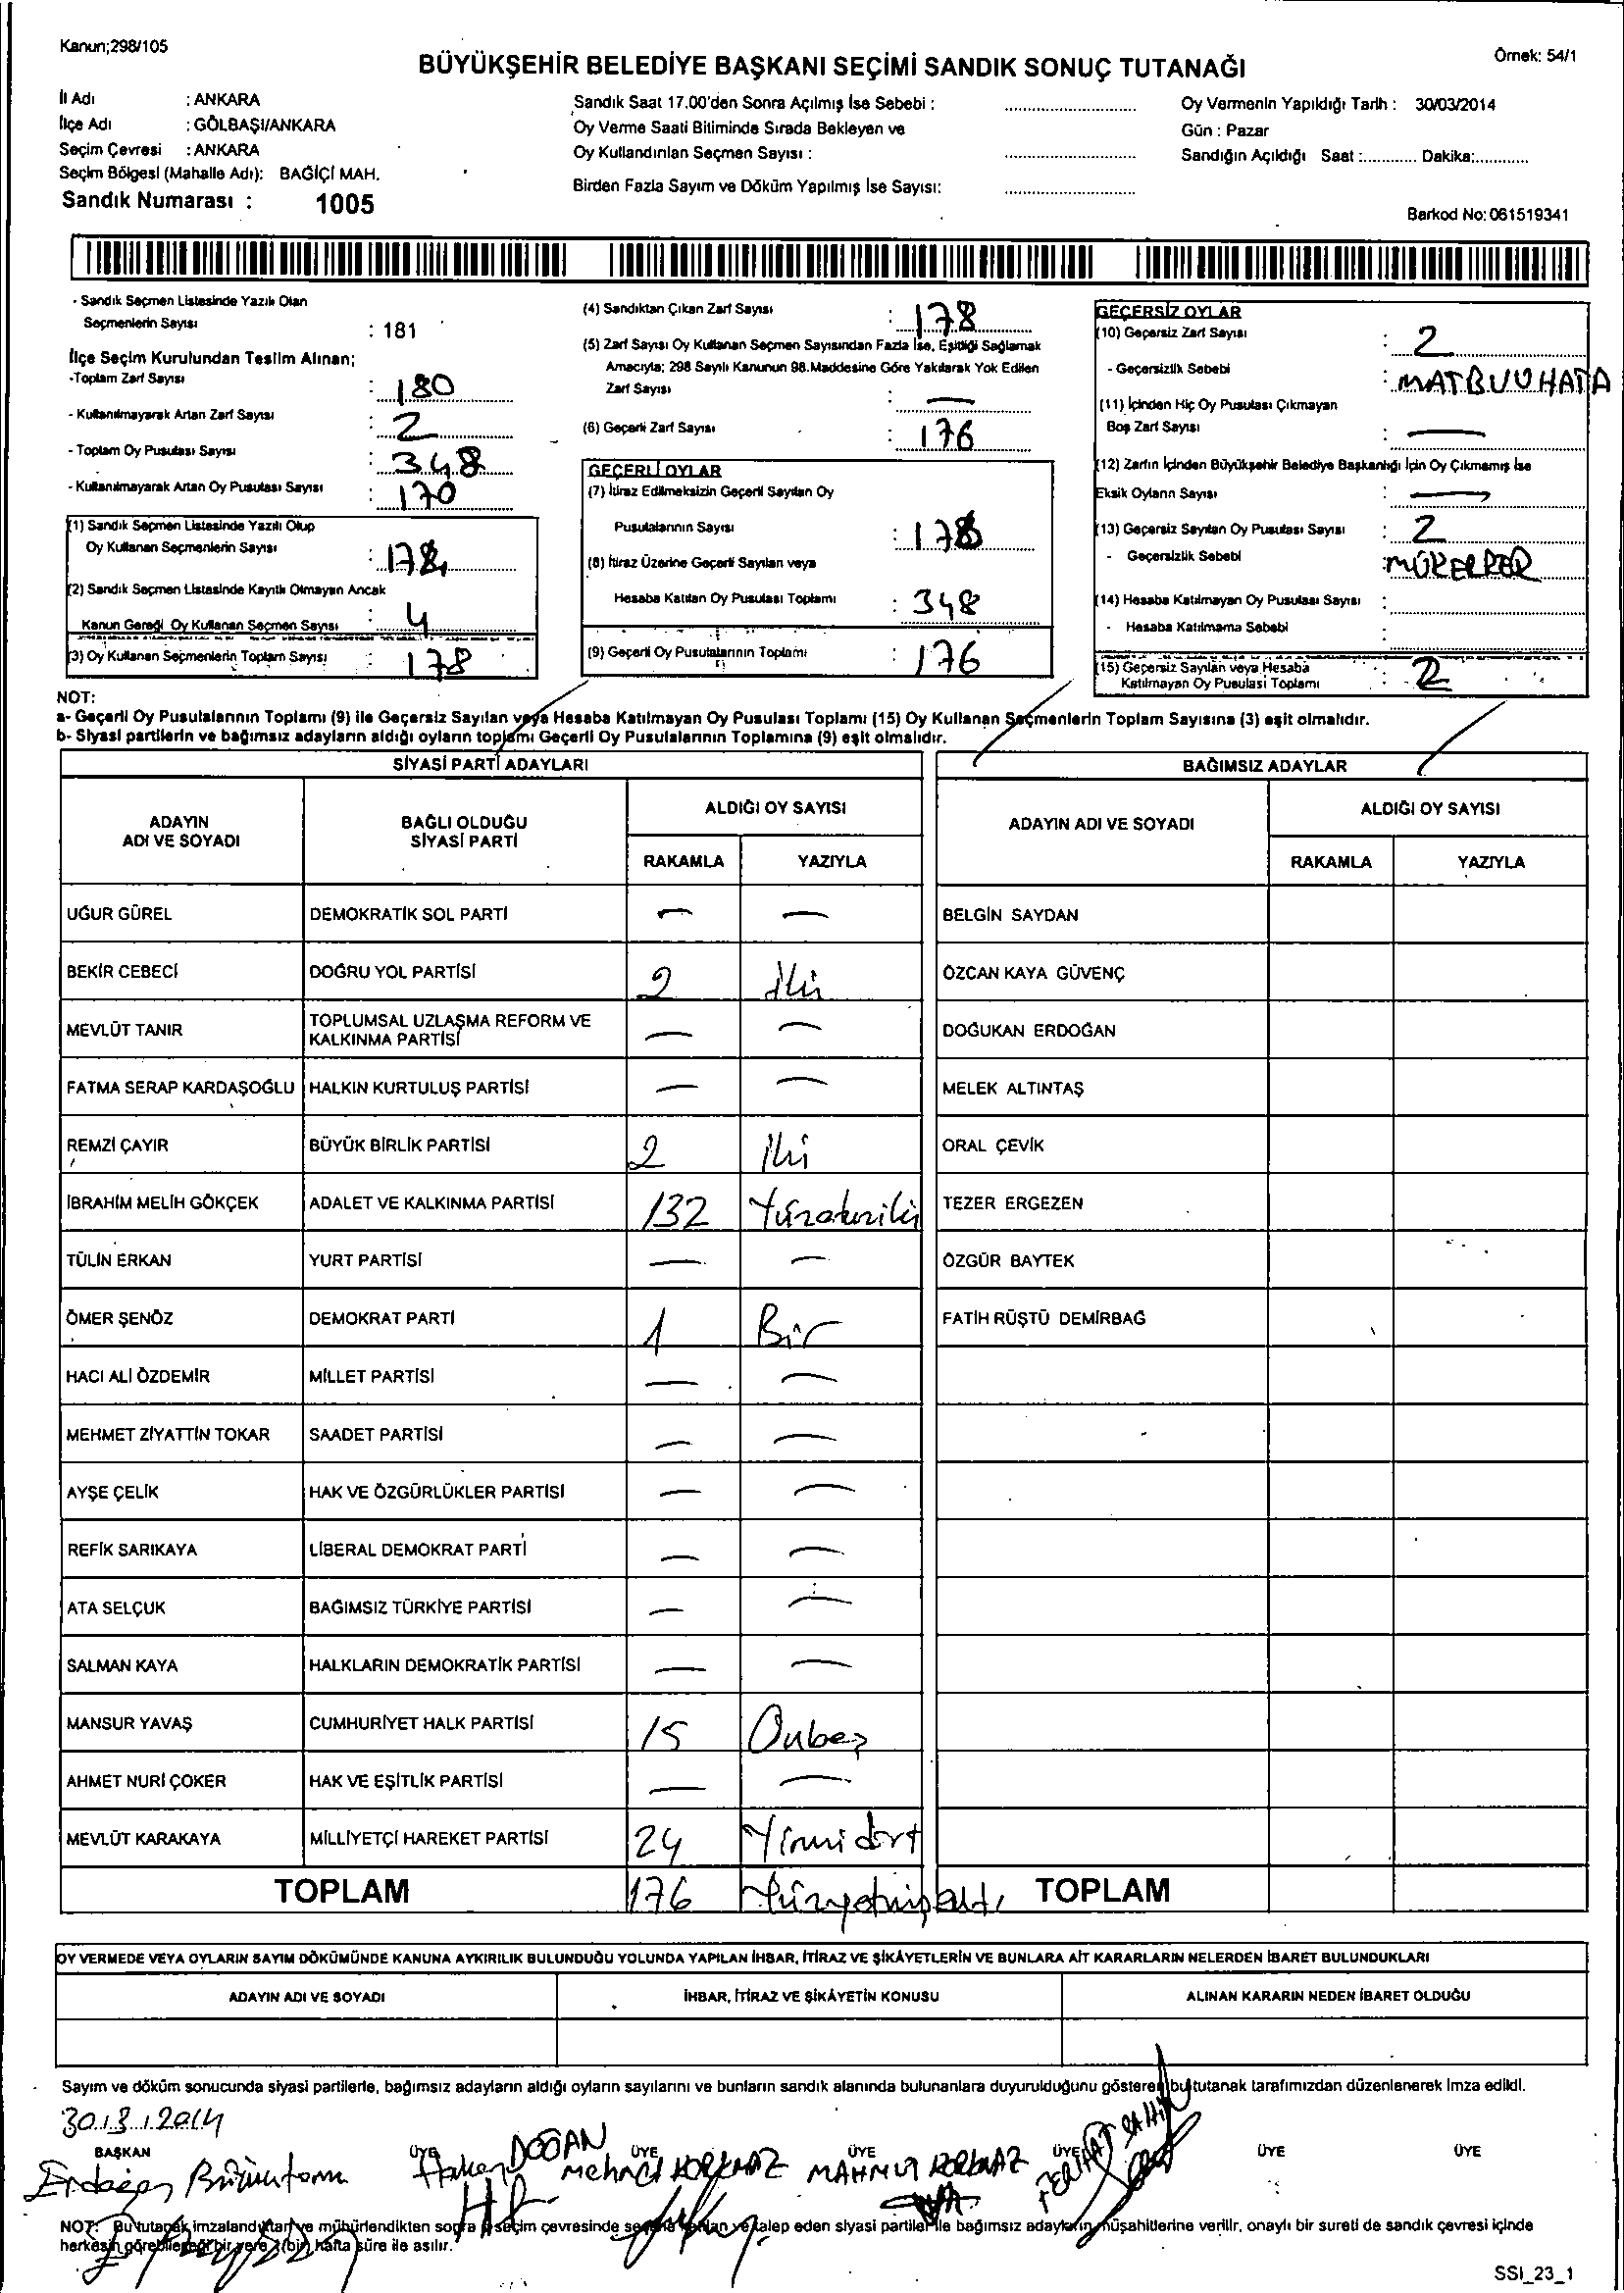 Kanun;298/105
Örnek: 54/1
BÜYÜKŞEHİR BELEDİYE BAŞKANI SEÇİMİ SANDIK SONUÇ TUTANAĞI
İl Adı : ANKARA
İlçe Adı : GÖLBAŞI/ANKARA
Seçim Çevresi : ANKARA
Seçim Bölgesi (Mahalle Adı): BAĞİÇİ MAH.
Sandık Numarası : 1005
Sandık Saat 17.00'den Sonra Açılmış İse Sebebi :
Oy Verme Saati Bitiminde Sırada Bekleyen ve
Oy Kullandırılan Seçmen Sayısı :
Birden Fazla Sayım ve Döküm Yapılmış İse Sayısı:
Oy Vermenin Yapıldığı Tarih : 30/03/2014
Gün : Pazar
Sandığın Açıldığı Saat :............ Dakika:............
Barkod No: 061519341
- Sandık Seçmen Listesinde Yazılı Olan
Seçmenlerin Sayısı : 181
İlçe Seçim Kurulundan Teslim Alınan;
-Toplam Zarf Sayısı : 180
- Kullanılmayarak Artan Zarf Sayısı : 2
- Toplam Oy Pusulası Sayısı : 348
- Kullanılmayarak Artan Oy Pusulası Sayısı : 170
(1) Sandık Seçmen Listesinde Yazılı Olup
Oy Kullanan Seçmenlerin Sayısı :
(2) Sandık Seçmen Listesinde Kayıtlı Olmayan Ancak
Kanun Gereği Oy Kullanan Seçmen Sayısı : 4
(3) Oy Kullanan Seçmenlerin Toplam Sayısı : 178
(4) Sandıktan Çıkan Zarf Sayısı : 178
(5) Zarf Sayısı Oy Kullanan Seçmen Sayısından Fazla İse, Eşitliği Sağlamak
Amacıyla; 298 Sayılı Kanunun 98.Maddesine Göre Yakılarak Yok Edilen
Zarf Sayısı : —
(6) Geçerli Zarf Sayısı : 176
GEÇERLİ OYLAR
(7) İtiraz Edilmeksizin Geçerli Sayılan Oy
Pusulalarının Sayısı :
(8) İtiraz Üzerine Geçerli Sayılan veya
Hesaba Katılan Oy Pusulası Toplamı : 348
(9) Geçerli Oy Pusulalarının Toplamı : 176
GEÇERSİZ OYLAR
(10) Geçersiz Zarf Sayısı : 2
- Geçersizlik Sebebi : MATBUU HATA
(11) İçinden Hiç Oy Pusulası Çıkmayan
Boş Zarf Sayısı : —
(12) Zarfın İçinden Büyükşehir Belediye Başkanlığı İçin Oy Çıkmamış İse
Eksik Oyların Sayısı : —
(13) Geçersiz Sayılan Oy Pusulası Sayısı : 2
- Geçersizlik Sebebi : MÜKERRER
(14) Hesaba Katılmayan Oy Pusulası Sayısı :
- Hesaba Katılmama Sebebi :
(15) Geçersiz Sayılan veya Hesaba
Katılmayan Oy Pusulası Toplamı : 2
NOT:
a- Geçerli Oy Pusulalarının Toplamı (9) ile Geçersiz Sayılan veya Hesaba Katılmayan Oy Pusulası Toplamı (15) Oy Kullanan Seçmenlerin Toplam Sayısına (3) eşit olmalıdır.
b- Siyasi partilerin ve bağımsız adayların aldığı oyların toplamı Geçerli Oy Pusulalarının Toplamına (9) eşit olmalıdır.
SİYASİ PARTİ ADAYLARI BAĞIMSIZ ADAYLAR
ADAYIN
ADI VE SOYADI
BAĞLI OLDUĞU
SİYASİ PARTİ
ALDIĞI OY SAYISI
RAKAMLA YAZIYLA
ADAYIN ADI VE SOYADI
ALDIĞI OY SAYISI
RAKAMLA YAZIYLA
UĞUR GÜREL DEMOKRATİK SOL PARTİ — — BELGİN SAYDAN
BEKİR CEBECİ DOĞRU YOL PARTİSİ 2 iki ÖZCAN KAYA GÜVENÇ
MEVLÜT TANIR TOPLUMSAL UZLAŞMA REFORM VE
KALKINMA PARTİSİ — — DOĞUKAN ERDOĞAN
FATMA SERAP KARDAŞOĞLU HALKIN KURTULUŞ PARTİSİ — — MELEK ALTINTAŞ
REMZİ ÇAYIR BÜYÜK BİRLİK PARTİSİ 2 iki ORAL ÇEVİK
İBRAHİM MELİH GÖKÇEK ADALET VE KALKINMA PARTİSİ 132 Yüzotuziki TEZER ERGEZEN
TÜLİN ERKAN YURT PARTİSİ — — ÖZGÜR BAYTEK
ÖMER ŞENÖZ DEMOKRAT PARTİ 1 Bir FATİH RÜŞTÜ DEMİRBAĞ
HACI ALİ ÖZDEMİR MİLLET PARTİSİ — —
MEHMET ZİYATTİN TOKAR SAADET PARTİSİ — —
AYŞE ÇELİK HAK VE ÖZGÜRLÜKLER PARTİSİ — —
REFİK SARIKAYA LİBERAL DEMOKRAT PARTİ — —
ATA SELÇUK BAĞIMSIZ TÜRKİYE PARTİSİ — —
SALMAN KAYA HALKLARIN DEMOKRATİK PARTİSİ — —
MANSUR YAVAŞ CUMHURİYET HALK PARTİSİ 15 Onbeş
AHMET NURİ ÇOKER HAK VE EŞİTLİK PARTİSİ — —
MEVLÜT KARAKAYA MİLLİYETÇİ HAREKET PARTİSİ 24 Yirmi dört
TOPLAM 176 Yüzyetmişaltı TOPLAM
OY VERMEDE VEYA OYLARIN SAYIM DÖKÜMÜNDE KANUNA AYKIRILIK BULUNDUĞU YOLUNDA YAPILAN İHBAR, İTİRAZ VE ŞİKÂYETLERİN VE BUNLARA AİT KARARLARIN NELERDEN İBARET BULUNDUKLARI
ADAYIN ADI VE SOYADI İHBAR, İTİRAZ VE ŞİKÂYETİN KONUSU ALINAN KARARIN NEDEN İBARET OLDUĞU
Sayım ve döküm sonucunda siyasi partilerle, bağımsız adayların aldığı oyların sayılarını ve bunların sandık alanında bulunanlara duyurulduğunu gösteren bu tutanak tarafımızdan düzenlenerek imza edildi.
30.3.2014
BAŞKAN ÜYE ÜYE ÜYE ÜYE ÜYE ÜYE
Hakan DOĞAN Mehmet KORKMAZ MAHMUT KORKMAZ FERHAT ŞAHİN
NOT: Bu tutanak imzalandıktan ve mühürlendikten sonra seçim çevresinde seçime katılan ve talep eden siyasi partiler ile bağımsız adayların müşahitlerine verilir, onaylı bir sureti de sandık çevresi içinde
herkesin görebileceği bir yere 1(bir) hafta süre ile asılır.
SSI_23_1